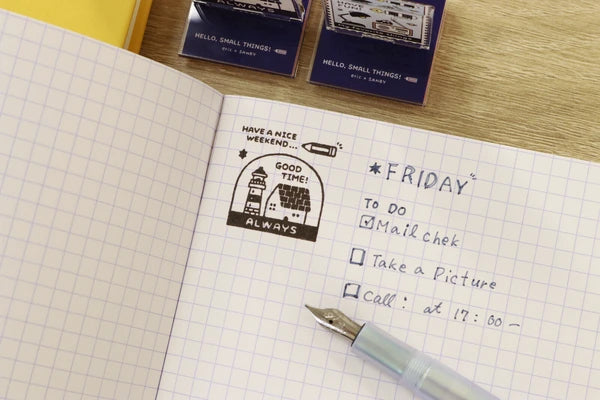 ALWAYS
HELLO, SMALL THINGS!
eric × SANBY
HELLO, SMALL THINGS!
eric × SANBY
HAVE A NICE
WEEKEND...
GOOD
TIME!
ALWAYS
FRIDAY
TO DO
Mail chek
Take a Picture
Call: at 17:00~